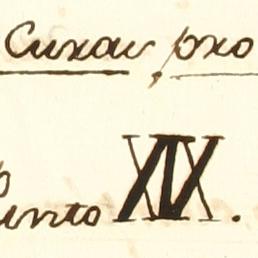 Curar, pro
unto XIX.